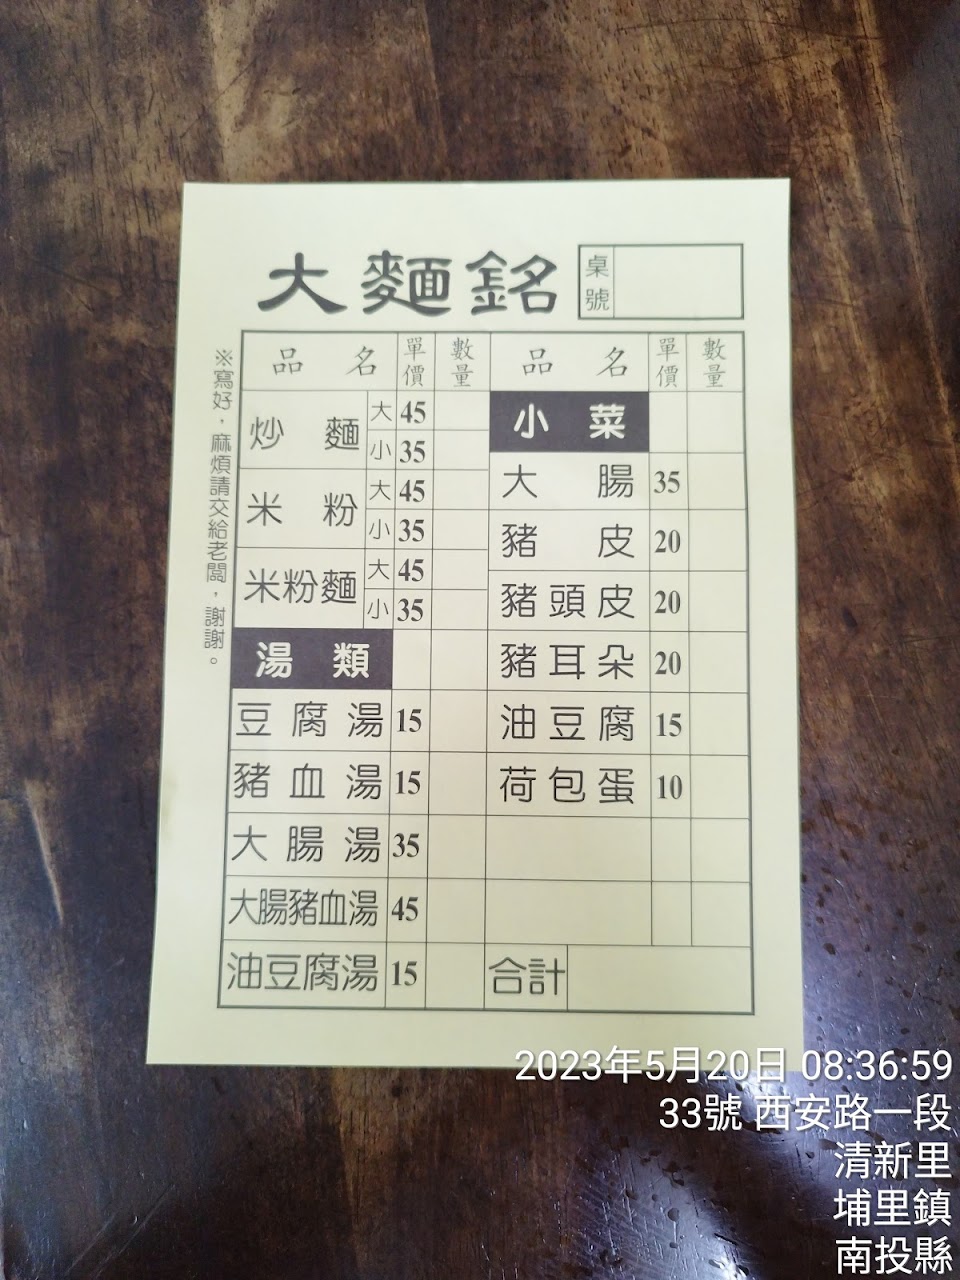 大麵銘
桌號
※寫好，麻煩請交給老闆，謝謝。
品名 單價 數量
炒麵 大 45
小 35
米粉 大 45
小 35
米粉麵 大 45
小 35
湯類
豆腐湯 15
豬血湯 15
大腸湯 35
大腸豬血湯 45
油豆腐湯 15
品名 單價 數量
小菜
大腸 35
豬皮 20
豬頭皮 20
豬耳朵 20
油豆腐 15
荷包蛋 10
合計
2023年5月20日 08:36:59
33號 西安路一段
清新里
埔里鎮
南投縣